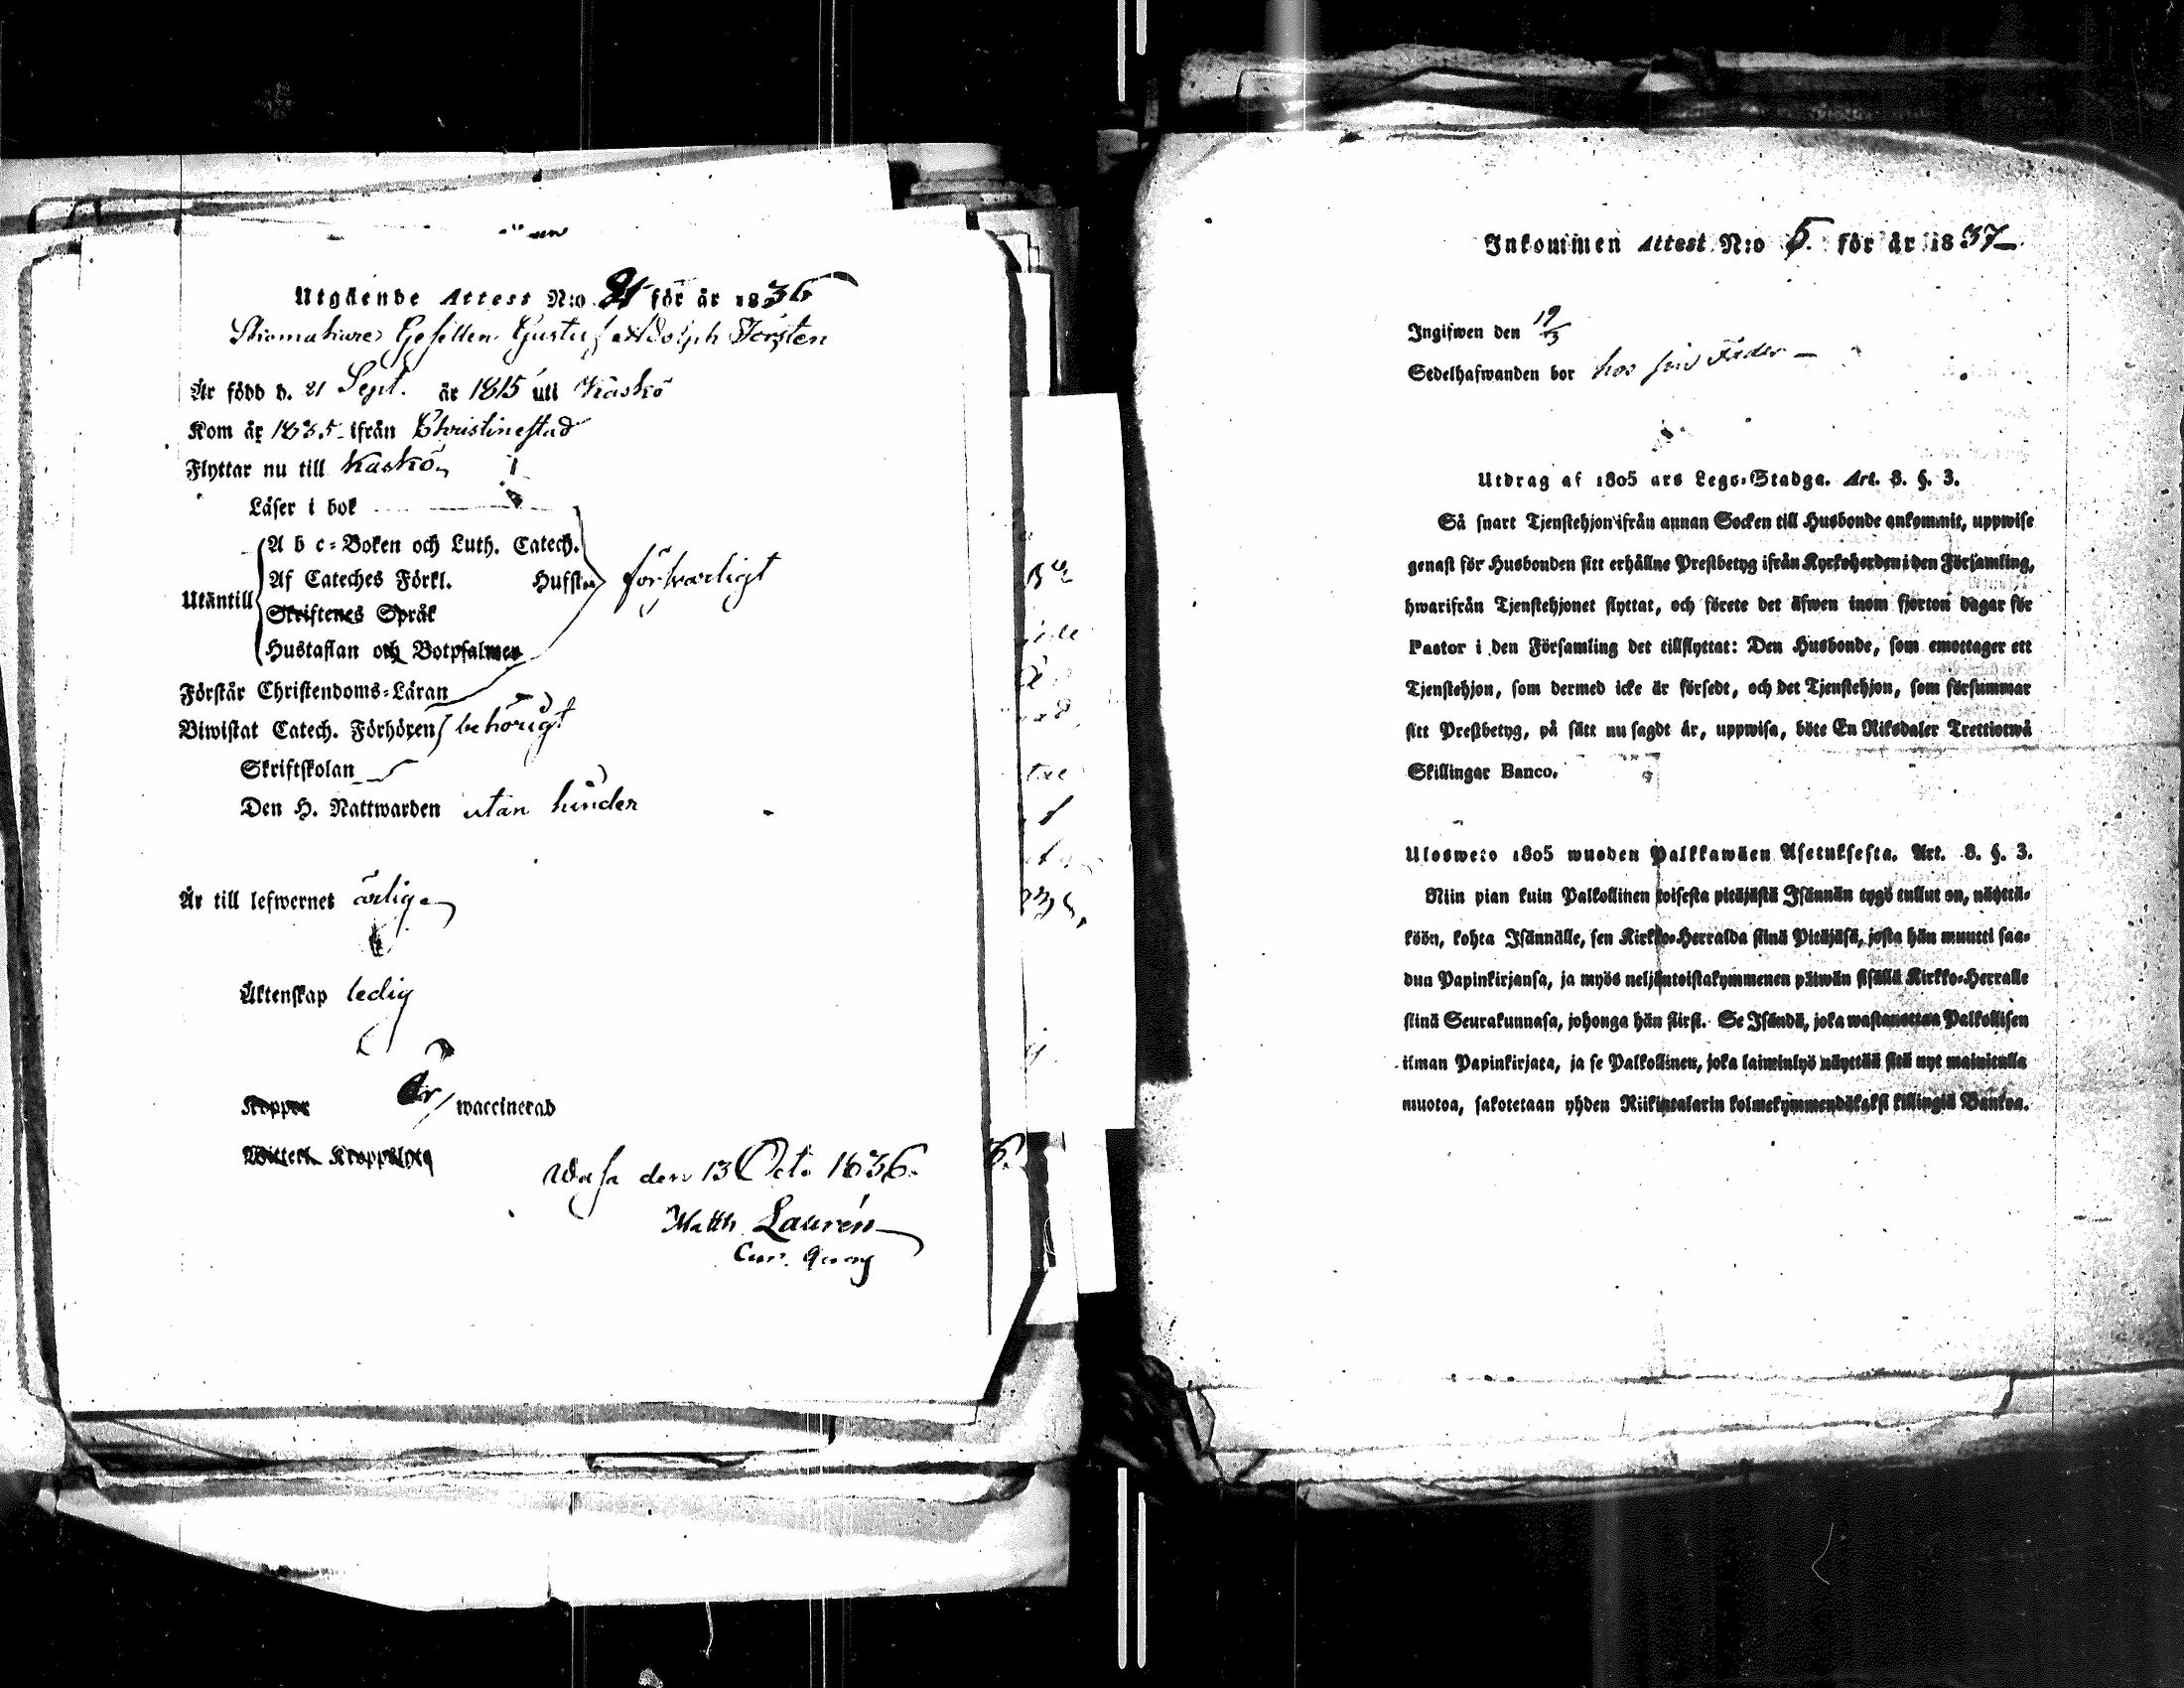 Utgående Attest N:o 21 för år 1836
Skomakare Gesellen Gustuf Adolph Forsten
Är född d. 21 Sept. år 1815 uti Kaskö
Kom år 1835 ifrån Christinestad
Flyttar nu till Kaskö
Läser i bok
Utäntill
A b c-Boken och Luth. Catech.
Af Cateches Förkl. Husfl. försvarligt
Skriftenes Språk
Hustaflan och Botpsalmer
Förstår Christendoms-Läran
Biwistat Catech. Förhören behörigt
Skriftskolan
Den H. Nattwarden utan hinder
Är till lefwernet ärlig
Äktenskap ledig
Koppor Är waccinerad
Wasa den 13 Oct. 1836.
Matth. Laurén
Inkommen Attest N:o 5. för år 1837
Ingifwen den 19/3
Sedelhafwanden bor hos sin Fader
Utdrag af 1805 ars Lego-Stadga. Art. 8. §. 3.
Så snart Tjenstehjon ifrån annan Socken till Husbonde ankommit, uppwise
genast för Husbonden sitt erhållne Prestbetyg ifrån Kyrkoherden i den Församling,
hwarifrån Tjenstehjonet flyttat, och förete det äfwen inom fjorton dagar för
Pastor i den Församling det tillflyttat: Den Husbonde, som emottager ett
Tjenstehjon, som dermed icke är försedt, och det Tjenstehjon, som försummar
sitt Prestbetyg, på sätt nu sagdt är, uppwisa, böte En Riksdaler Trettiotwå
Skillingar Banco.
Ulosweto 1805 wuoden Palkkawäen Asetuksesta. Art. 8. §. 3.
Niin pian kuin Palkollinen toisesta pitäjästä Isännän tygö tullut on, näyttä-
köön, kohta Isännälle, sen Kirkko-Herralda siinä Pitäjäsä, josta hän muutti saa-
dun Papinkirjansa, ja myös neljäntoistakymmenen päiwän sisällä Kirkko-Herralle
siinä Seurakunnasa, johonga hän siirsi. Se Isändä, joka wastanottaa Palkollisen
ilman Papinkirjata, ja se Palkollinen, joka laiminlyö näyttää sitä nyt mainitulla
muotoa, sakotetaan yhden Riikintalarin kolmekymmendäkaksi killingiä Bankoa.